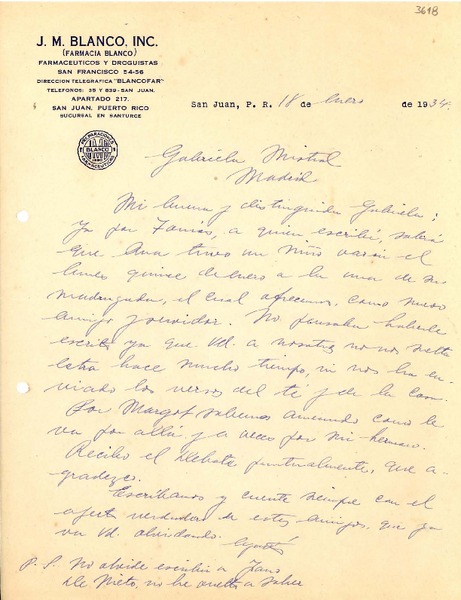 3618
J. M. BLANCO, INC.
(FARMACIA BLANCO)
FARMACEUTICOS Y DROGUISTAS
SAN FRANCISCO 54-56
DIRECCION TELEGRAFICA "BLANCOFAR"
TELEFONOS: 35 Y 839 - SAN JUAN.
APARTADO 217.
SAN JUAN, PUERTO RICO
SUCURSAL EN SANTURCE
San Juan, P. R. 18 de enero de 1934.
PREPARACIONES
BLANCO
Gabriela Mistral
Madrid
Mi buena y distinguida Gabriela:
Ya por Tomás, a quien escribí, sabrá
que Ana tuvo un niño varón el
lunes quince de enero a la una de la
madrugada, el cual ofrecemos, como nuevo
amigo y servidor. No pensaba haberle
escrito ya que Ud. a nosotros no nos
hace mucho tiempo, ni nos ha en-
viado los versos del té y de la
Por Margot sabemos a menudo como le
va por allá, y a veces por mi hermano.
Recibo el Debate puntualmente, que a-
gradezco.
Escríbanos y cuente siempre con el
afecto verdadero de estos amigos, que ya
va Ud. olvidando.
P. S. No olvide escribir a
De Nieto, no he vuelto a saber